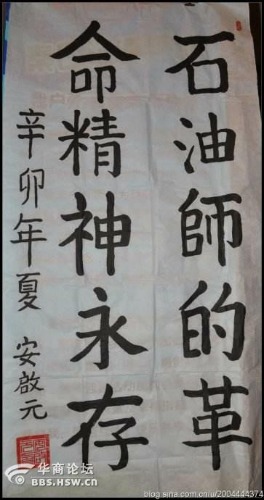 石油師的革
命精神永存
辛卯年夏 安啟元
华商论坛
BBS.HSW.CN